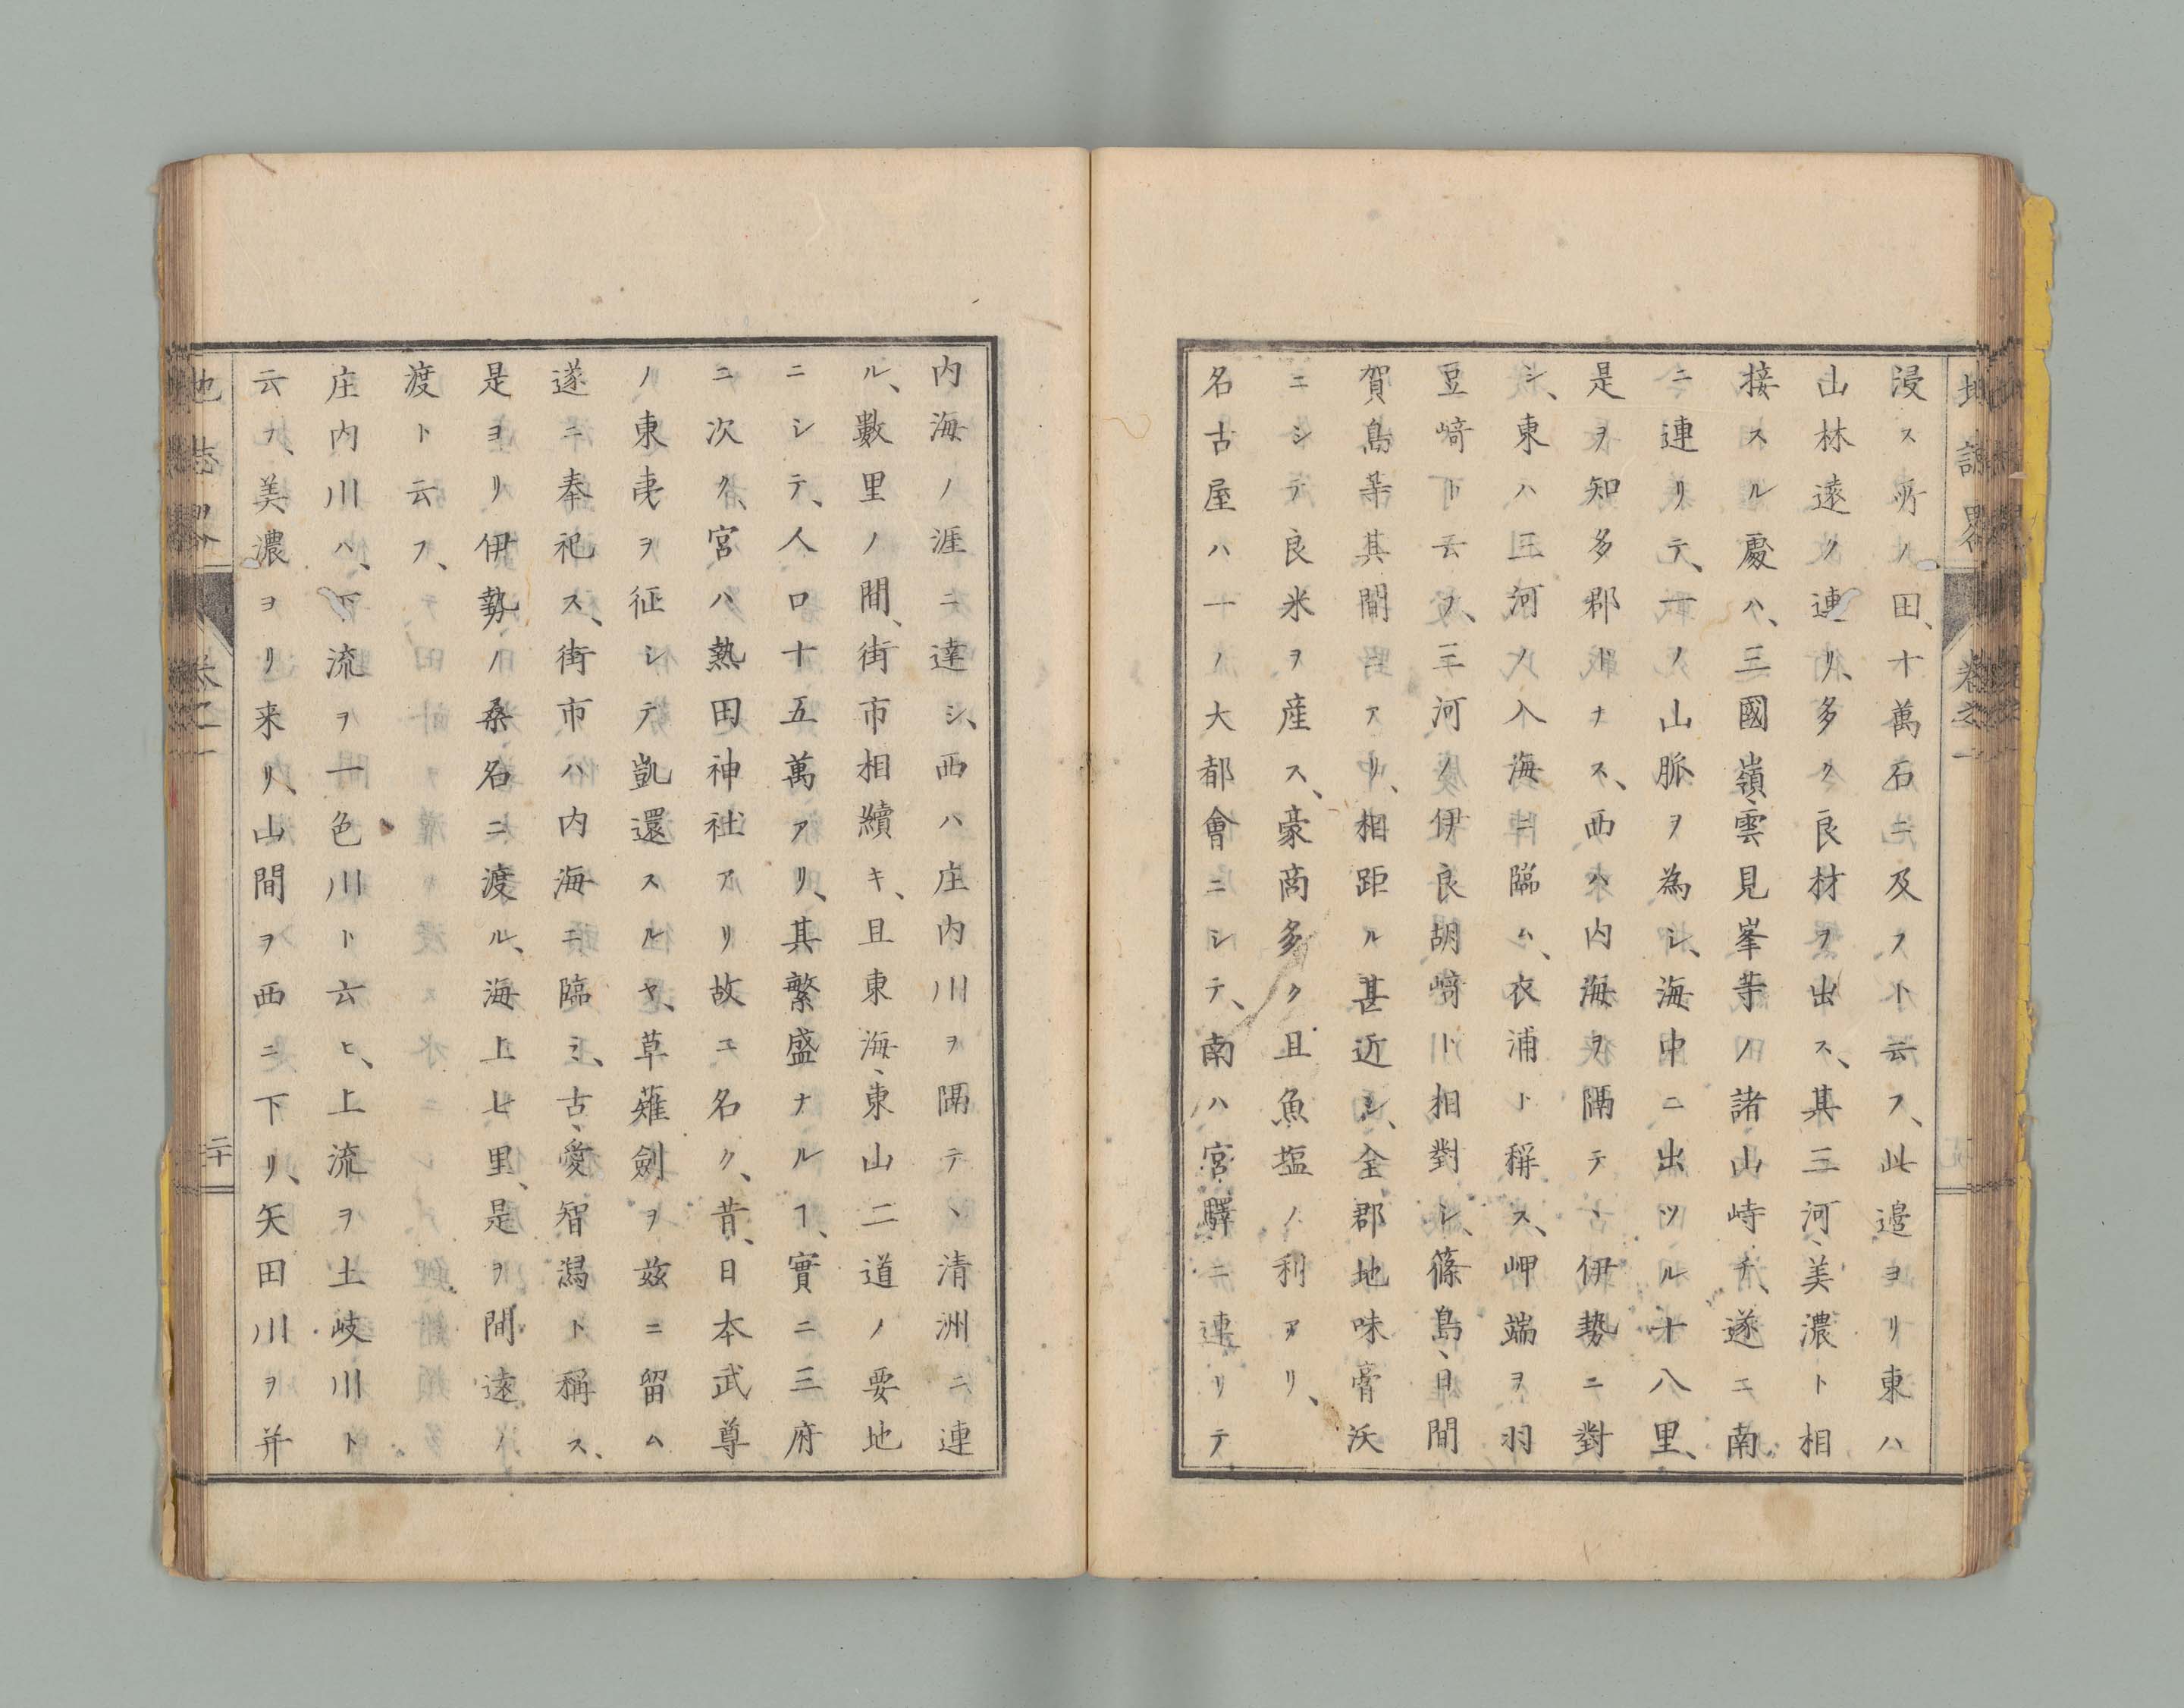 浸ス所ノ田、十萬石ニ及フト云フ、此邊ヨリ東ハ
山林遠ク連リ、多ク良材ヲ出ス、其三河、美濃ト相
接スル處ハ、三國嶺、雲見峯等ノ諸山峙チ、遂ニ南
ニ連リテ、一ノ山脈ヲ為シ、海中ニ出ツル十八里、
是ヲ知多郡トナス、西ハ内海ヲ隔テヽ伊勢ニ對
シ、東ハ三河ノ入海ニ臨ム、衣浦ト稱ス、岬端ヲ羽
豆﨑ト云フ、三河ノ伊良胡﨑ト相對シ、篠島、日間
賀島等其間ニアリ、相距ル甚近シ、全郡地味膏沃
ニシテ良米ヲ産ス、豪商多ク且魚塩ノ利アリ、
名古屋ハ一ノ大都會ニシテ、南ハ宮驛ニ連リテ
地誌畧 卷之一
内海ノ涯ニ達シ、西ハ庄内川ヲ隔テヽ清洲ニ連
ル、數里ノ間、街市相續キ、且東海、東山二道ノ要地
ニシテ、人口十五萬アリ、其繁盛ナルヿ、實ニ三府
ニ次ク、宮ハ熱田神社アリ故ニ名ク、昔、日本武尊
ノ東夷ヲ征シテ凱還スルヤ、草薙劍ヲ茲ニ留ム
遂ニ奉祀ス、街市ハ内海ニ臨ミ、古、愛智潟ト稱ス、
是ヨリ伊勢ノ桑名ニ渡ル、海上七里、是ヲ間遠ノ
渡ト云フ、
庄内川ハ、下流ヲ一色川ト云ヒ、上流ヲ土岐川ト
云フ、美濃ヨリ来リ、山間ヲ西ニ下リ、矢田川ヲ并
地誌畧 卷之一 二十